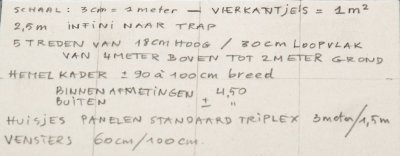 SCHAAL: 3cm = 1 meter - VIERKANTJES = 1m²
2,5m INFINI NAAR TRAP
5 TREDEN VAN 18cm HOOG / 30cm LOOPVLAK
VAN 4METER BOVEN TOT 2METER GROND
HEMEL KADER ± 90 à 100cm breed
BINNENAFMETINGEN 4,50
BUITEN ± "
HUISJES PANELEN STANDAARD TRIPLEX 3meter/1,5m
VENSTERS 60cm/100cm.